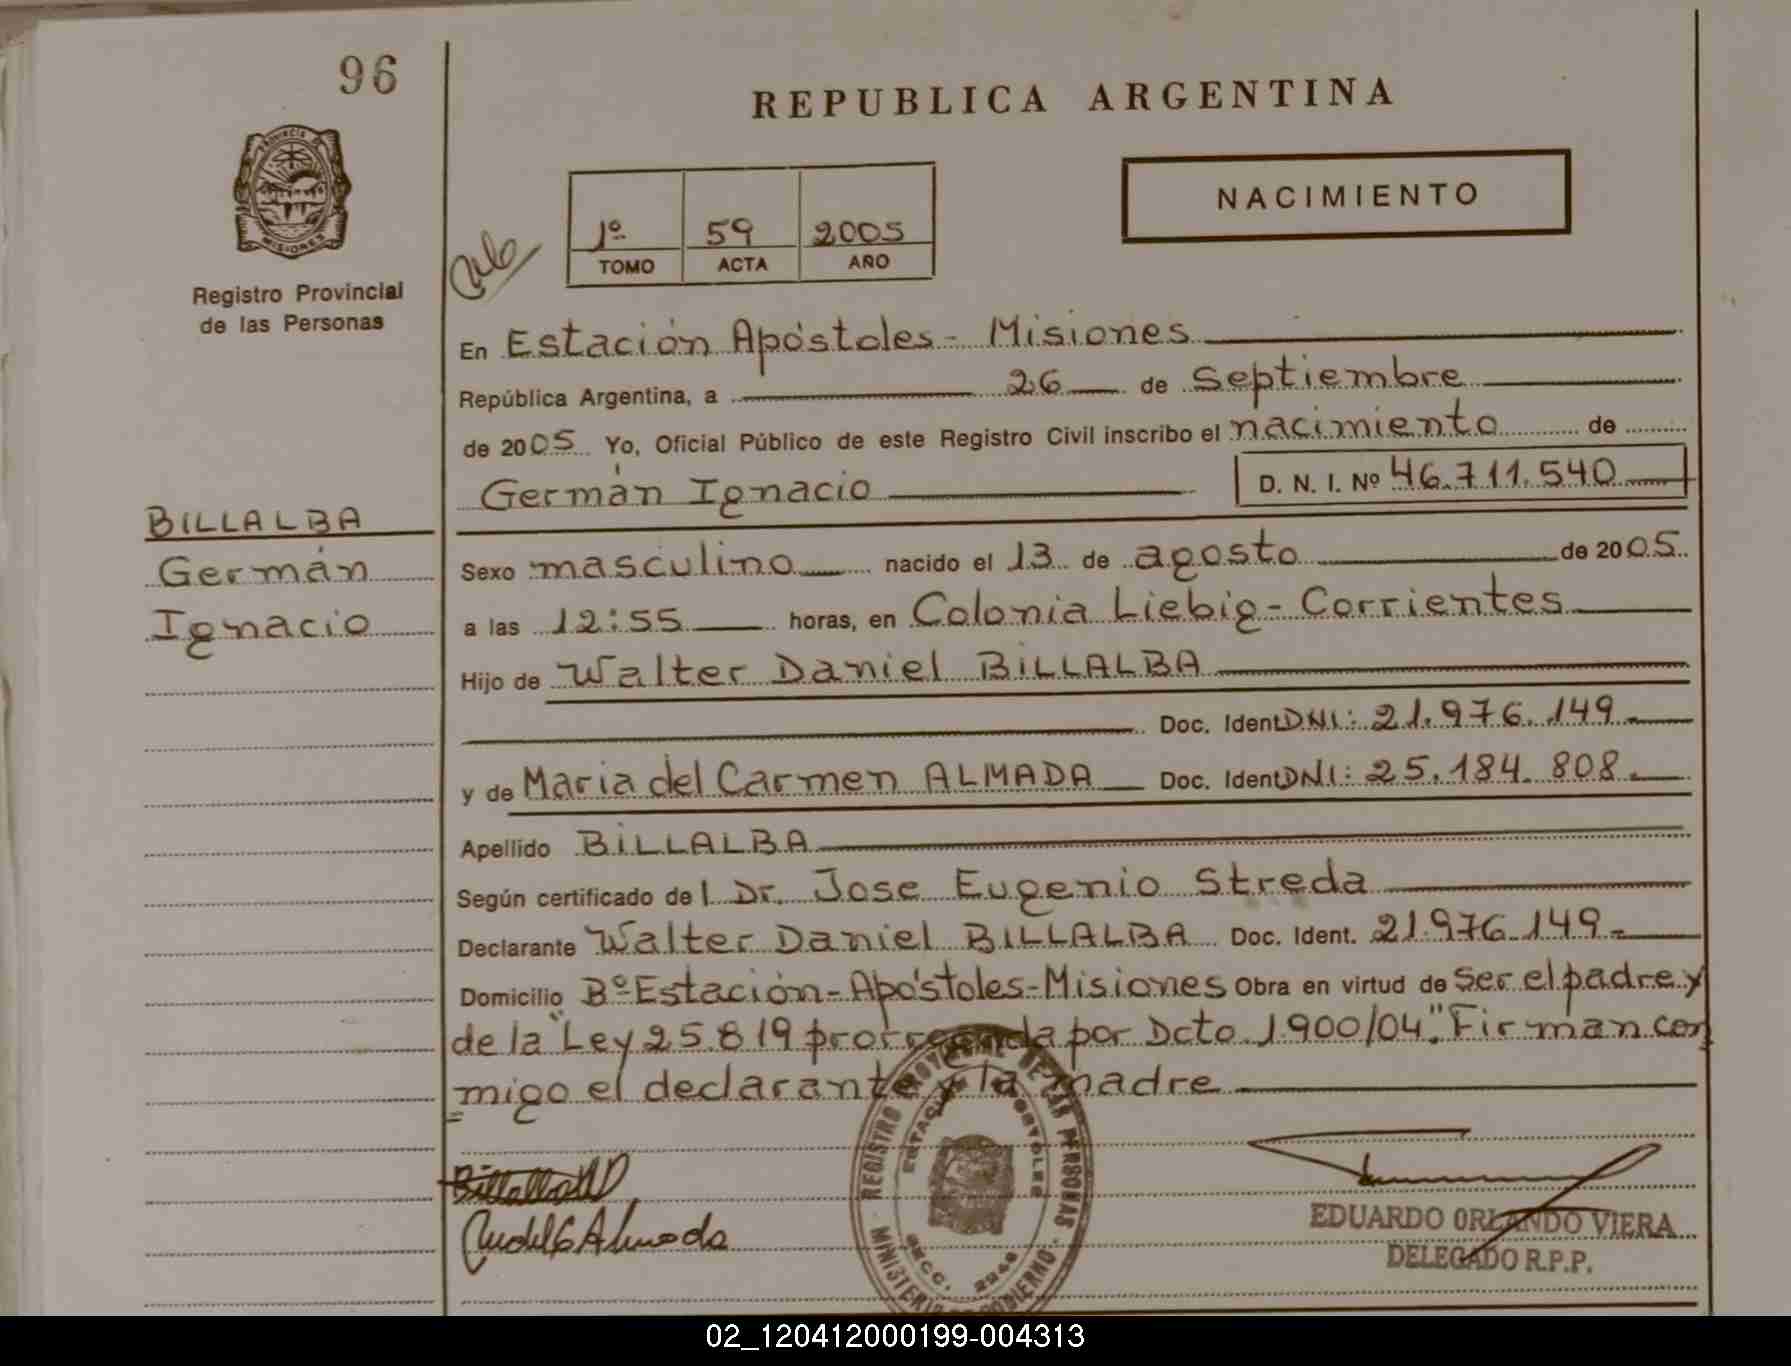 96
REPUBLICA ARGENTINA
PROVINCIA
MISIONES
Registro Provincial
de las Personas
NACIMIENTO
1º 59 2005
TOMO ACTA AÑO
En Estación Apóstoles - Misiones
República Argentina, a 26 de Septiembre
de 2005 Yo, Oficial Público de este Registro Civil inscribo el nacimiento de
Germán Ignacio D. N. I. Nº 46.711.540
BILLALBA
Germán
Ignacio
Sexo masculino nacido el 13 de agosto de 2005
a las 12:55 horas, en Colonia Liebig - Corrientes
Hijo de Walter Daniel BILLALBA
Doc. Ident DNI: 21.976.149
y de Maria del Carmen ALMADA Doc. Ident DNI: 25.184.808.
Apellido BILLALBA
Según certificado del Dr. Jose Eugenio Streda
Declarante Walter Daniel BILLALBA Doc. Ident. 21.976.149-
Domicilio Bº Estación - Apóstoles - Misiones Obra en virtud de Ser el padre y
de la "Ley 25.819 prorrogada por Dcto. 1.900/04." Firman con
migo el declarante y la madre
REGISTRO PROVINCIAL DE LAS PERSONAS
ESTACION APOSTOLES
MINISTERIO DE GOBIERNO
Almada
EDUARDO ORLANDO VIERA
DELEGADO R.P.P.
02_120412000199-004313